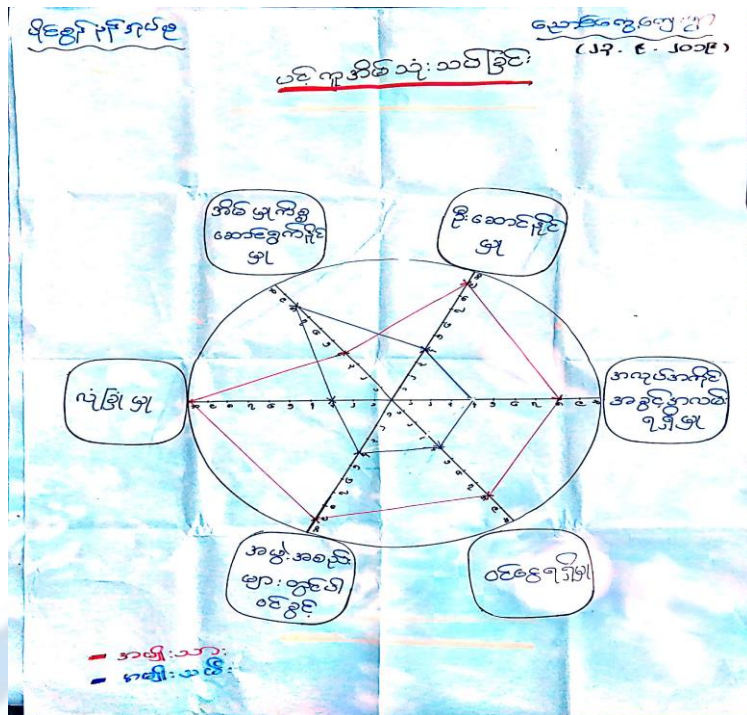 ညောင်ကွေ့ကျေးရွာ
(၂၃. ၉. ၂၀၁၉)
ပင့်ကူအိမ်သုံးသပ်ခြင်း
အိမ်မှုကိစ္စ
ဆောင်ရွက်နိုင်
မှု
ဦးဆောင်နိုင်
မှု
လုံခြုံမှု
အလုပ်အကိုင်
အခွင့်အလမ်း
ရရှိမှု
အဖွဲ့အစည်း
များတွင်ပါ
ဝင်ခွင့်
ဝင်ငွေရရှိမှု
အမျိုးသား
အမျိုးသမီး